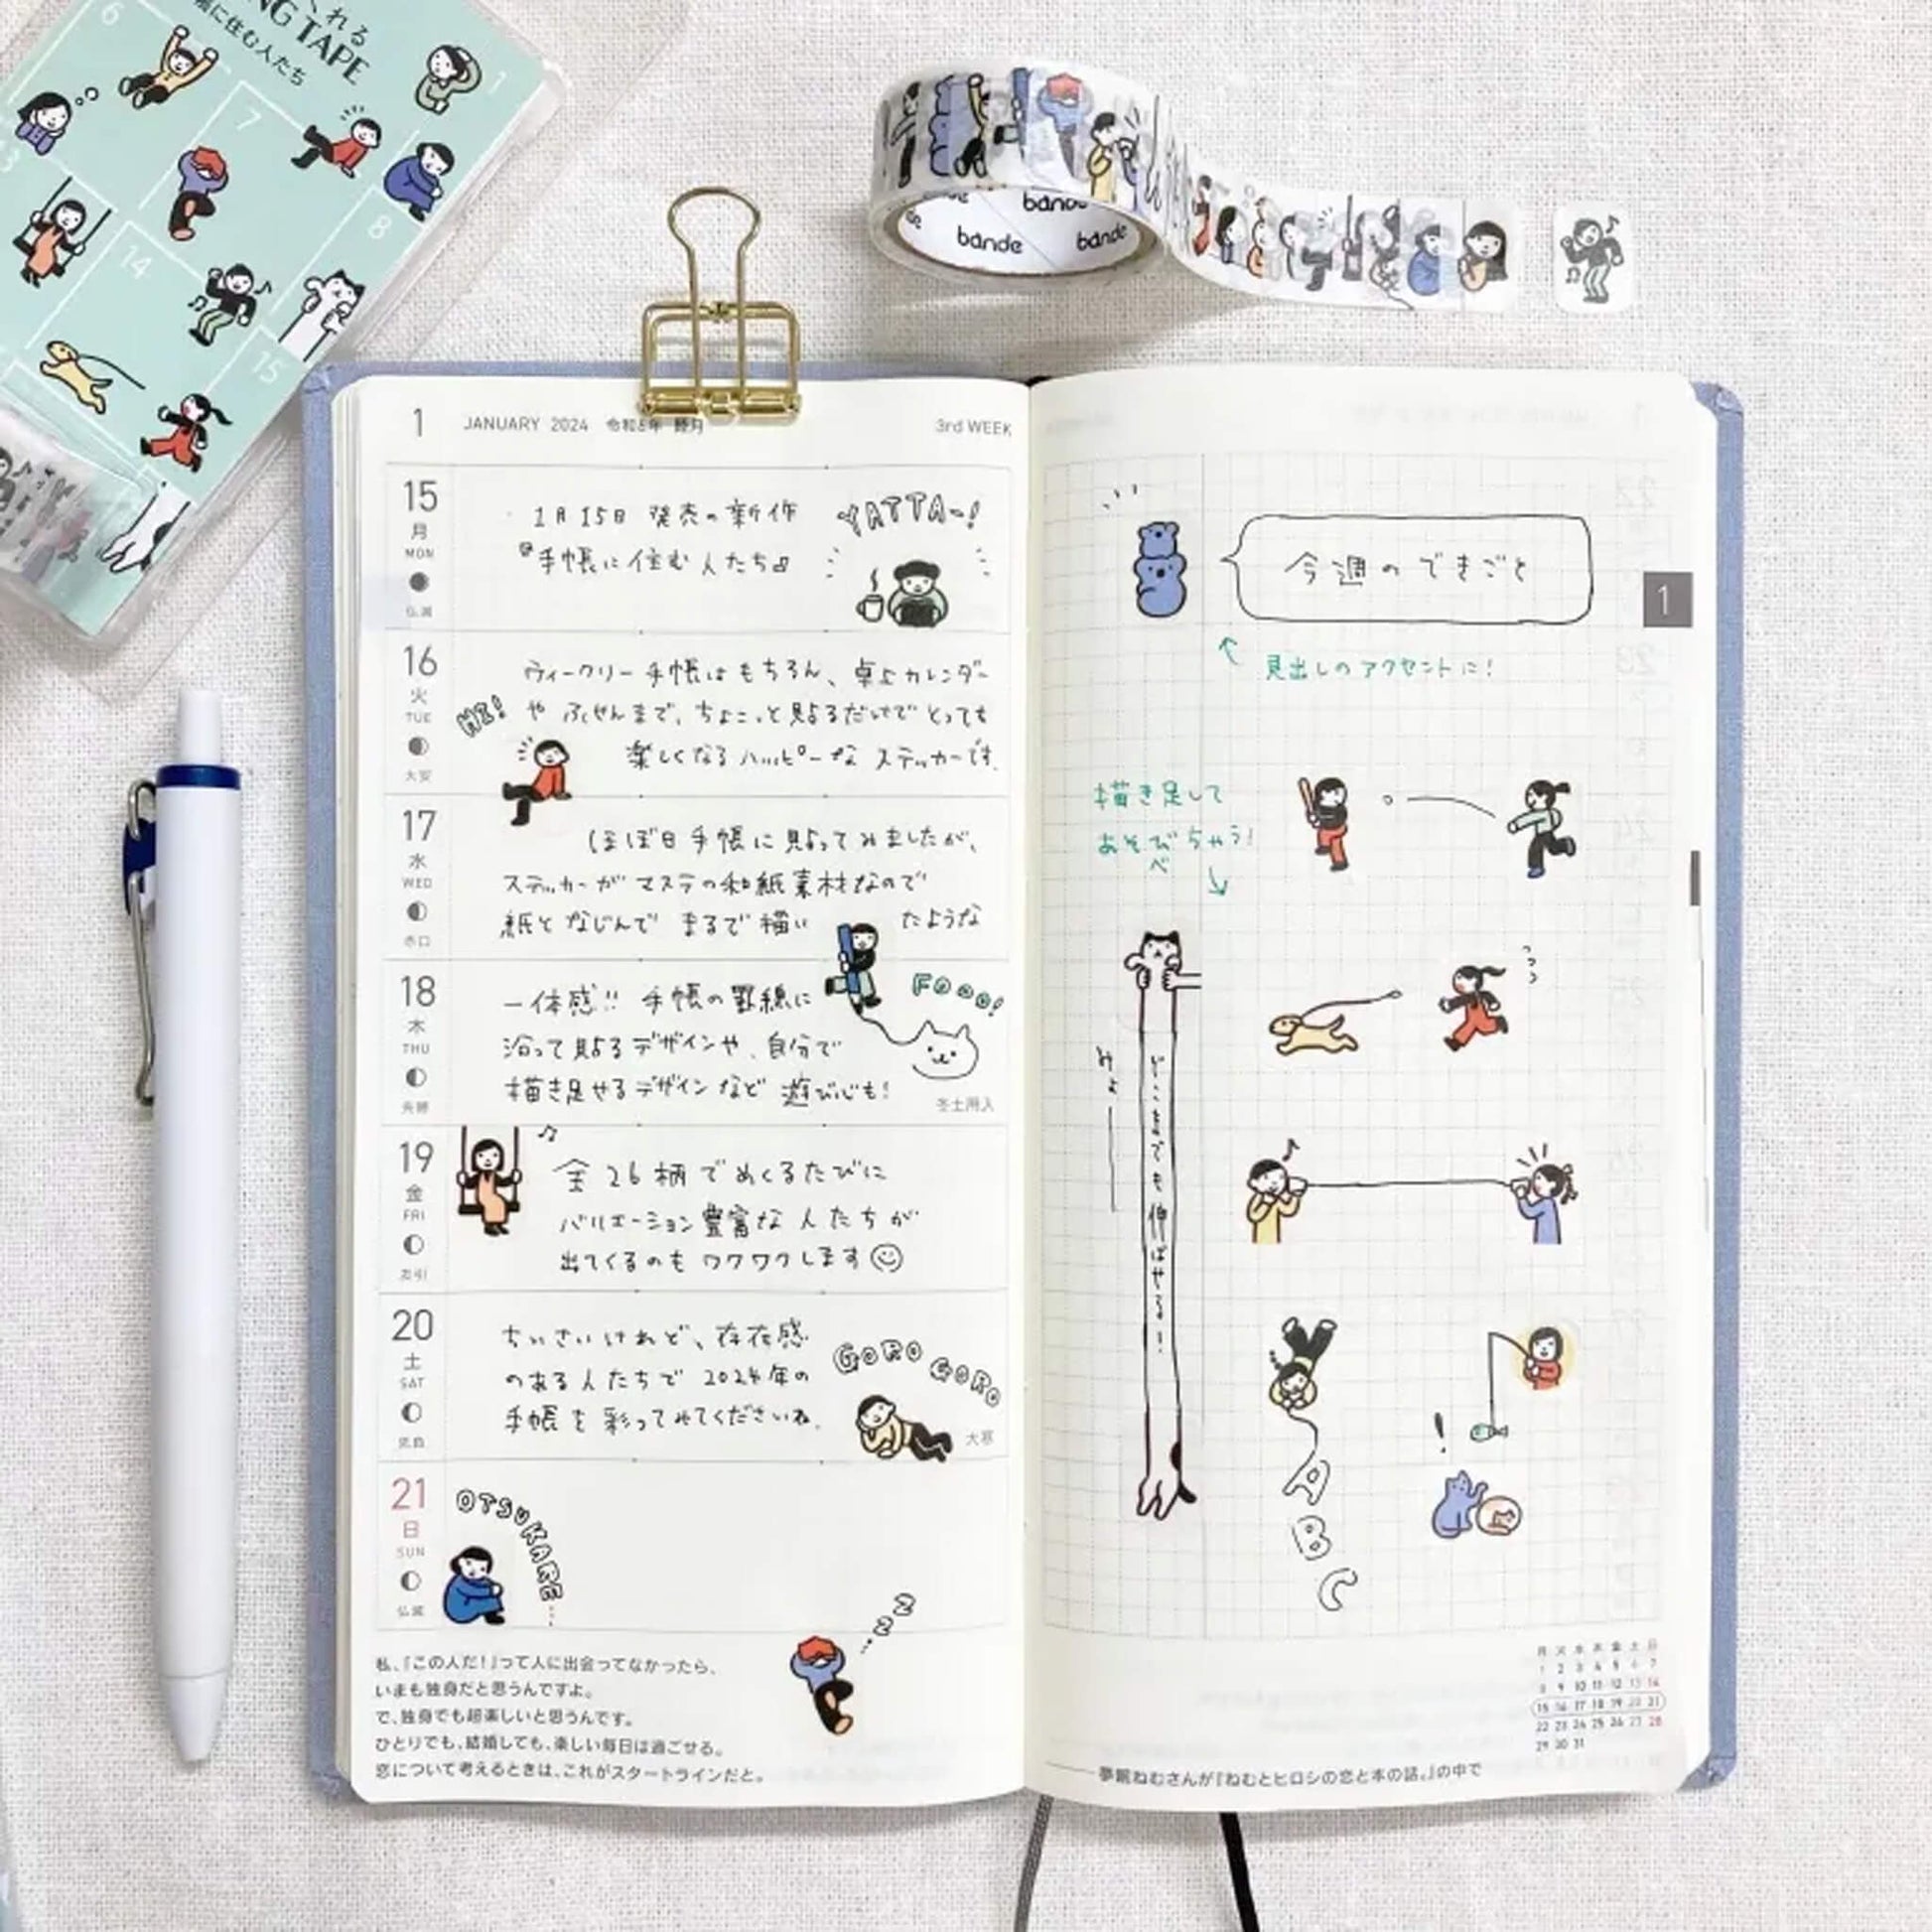 くれる
NG TAPE
帳に住む人たち
6
1
7
13
8
14
15
bande
bande
bande
1 JANUARY 2024 令和6年 睦月 3rd WEEK
15
月
MON
仏滅
1月15日 発売の新作
『手帳に住む人たち』
YATTA~!
16
火
TUE
大安
HI!
ウィークリー手帳はもちろん、卓上カレンダー
や ふせんまで、ちょこっと貼るだけで とっても
楽しくなる ハッピーな ステッカーです。
17
水
WED
赤口
ほぼ日手帳に貼ってみましたが、
ステッカーが マステの和紙素材なので
紙と なじんで まるで 描い たような
18
木
THU
先勝
一体感!! 手帳の罫線に
沿って貼るデザインや、自分で
描き足せるデザインなど 遊び心も!
FOOO!
冬土用入
19
金
FRI
友引
全26柄で めくるたびに
バリエーション豊富な 人たちが
出てくるのも ワクワクします
20
土
SAT
先負
ちいさいけれど、存在感
のある人たちで 2024年の
手帳を 彩ってみてくださいね。
GORO GORO
大寒
21
日
SUN
仏滅
OTSUKARE...
zz
私、『この人だ!』って人に出会ってなかったら、
いまも独身だと思うんですよ。
で、独身でも超楽しいと思うんです。
ひとりでも、結婚しても、楽しい毎日は過ごせる。
恋について考えるときは、これがスタートラインだと。
今週のできごと
1
見出しのアクセントに!
描き足して
あそべちゃう!
みょーーー
どこまでも伸ばせる!
!
A
B
C
月 火 水 木 金 土 日
1 2 3 4 5 6 7
8 9 10 11 12 13 14
15 16 17 18 19 20 21
22 23 24 25 26 27 28
29 30 31
——夢眠ねむさんが『ねむとヒロシの恋と本の話。』の中で